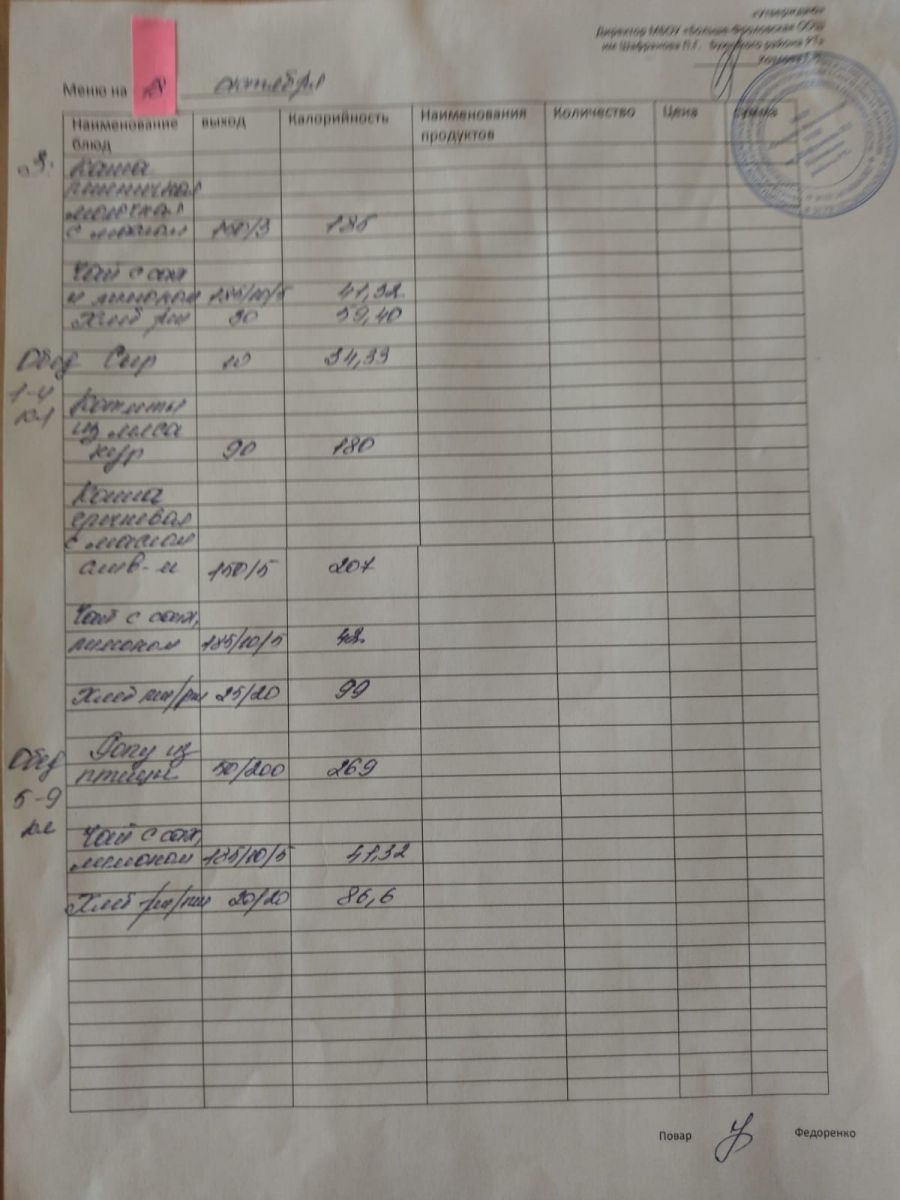 «Утверждаю»
Директор МБОУ «Больше-Фроловская ООШ
им Шабранова П.Г. района РТ»
Меню на 18 октября
Наименование блюд выход Калорийность Наименования продуктов Количество Цена сумма
З.
Каша
пшеничная
молочная
с маслом 150/3 185
Чай с сах
и лимоном 185/10/5 41,32
Хлеб рж 30 59,40
Обед Сыр 10 34,33
1-4
кл
Котлеты
из мяса
кур 90 180
Каша
гречневая
с маслом
слив-м 150/5 207
Чай с сах,
лимоном 185/10/5 42
Хлеб пш/рж 25/20 99
Обед
5-9
кл
Рагу из
птицы 50/200 269
Чай с сах,
лимоном 185/10/5 41,32
Хлеб рж/пш 20/20 86,6
Повар Федоренко